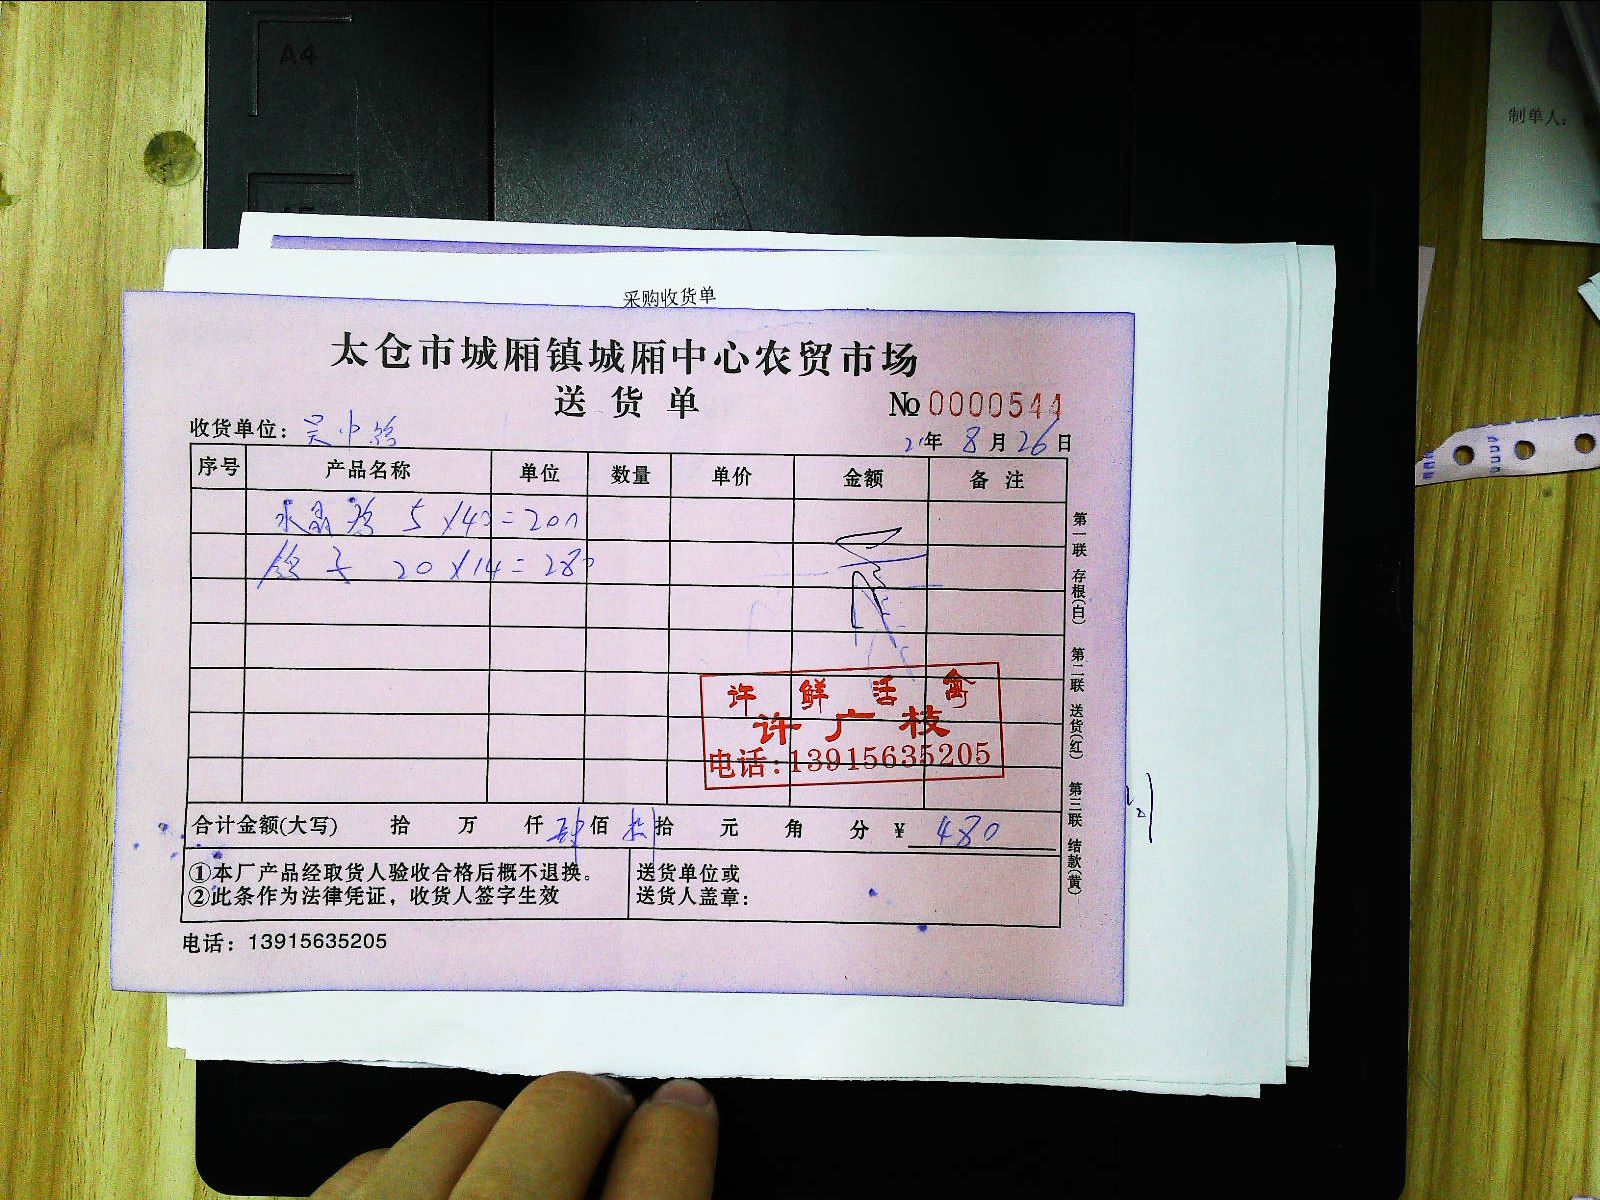 A4
制单人：
采购收货单
太仓市城厢镇城厢中心农贸市场
送货单
№ 0000544
收货单位：吴中
21年 8月26日
序号 产品名称 单位 数量 单价 金额 备注
水晶 5×40=200
鸽子 20×14=280
许鲜活禽
许广枝
电话：13915635205
合计金额(大写) 拾 万 仟 肆佰 捌拾 元 角 分 ¥ 480
①本厂产品经取货人验收合格后概不退换。
②此条作为法律凭证，收货人签字生效
送货单位或
送货人盖章：
电话：13915635205
第一联 存根(白) 第二联 送货(红) 第三联 结款(黄)